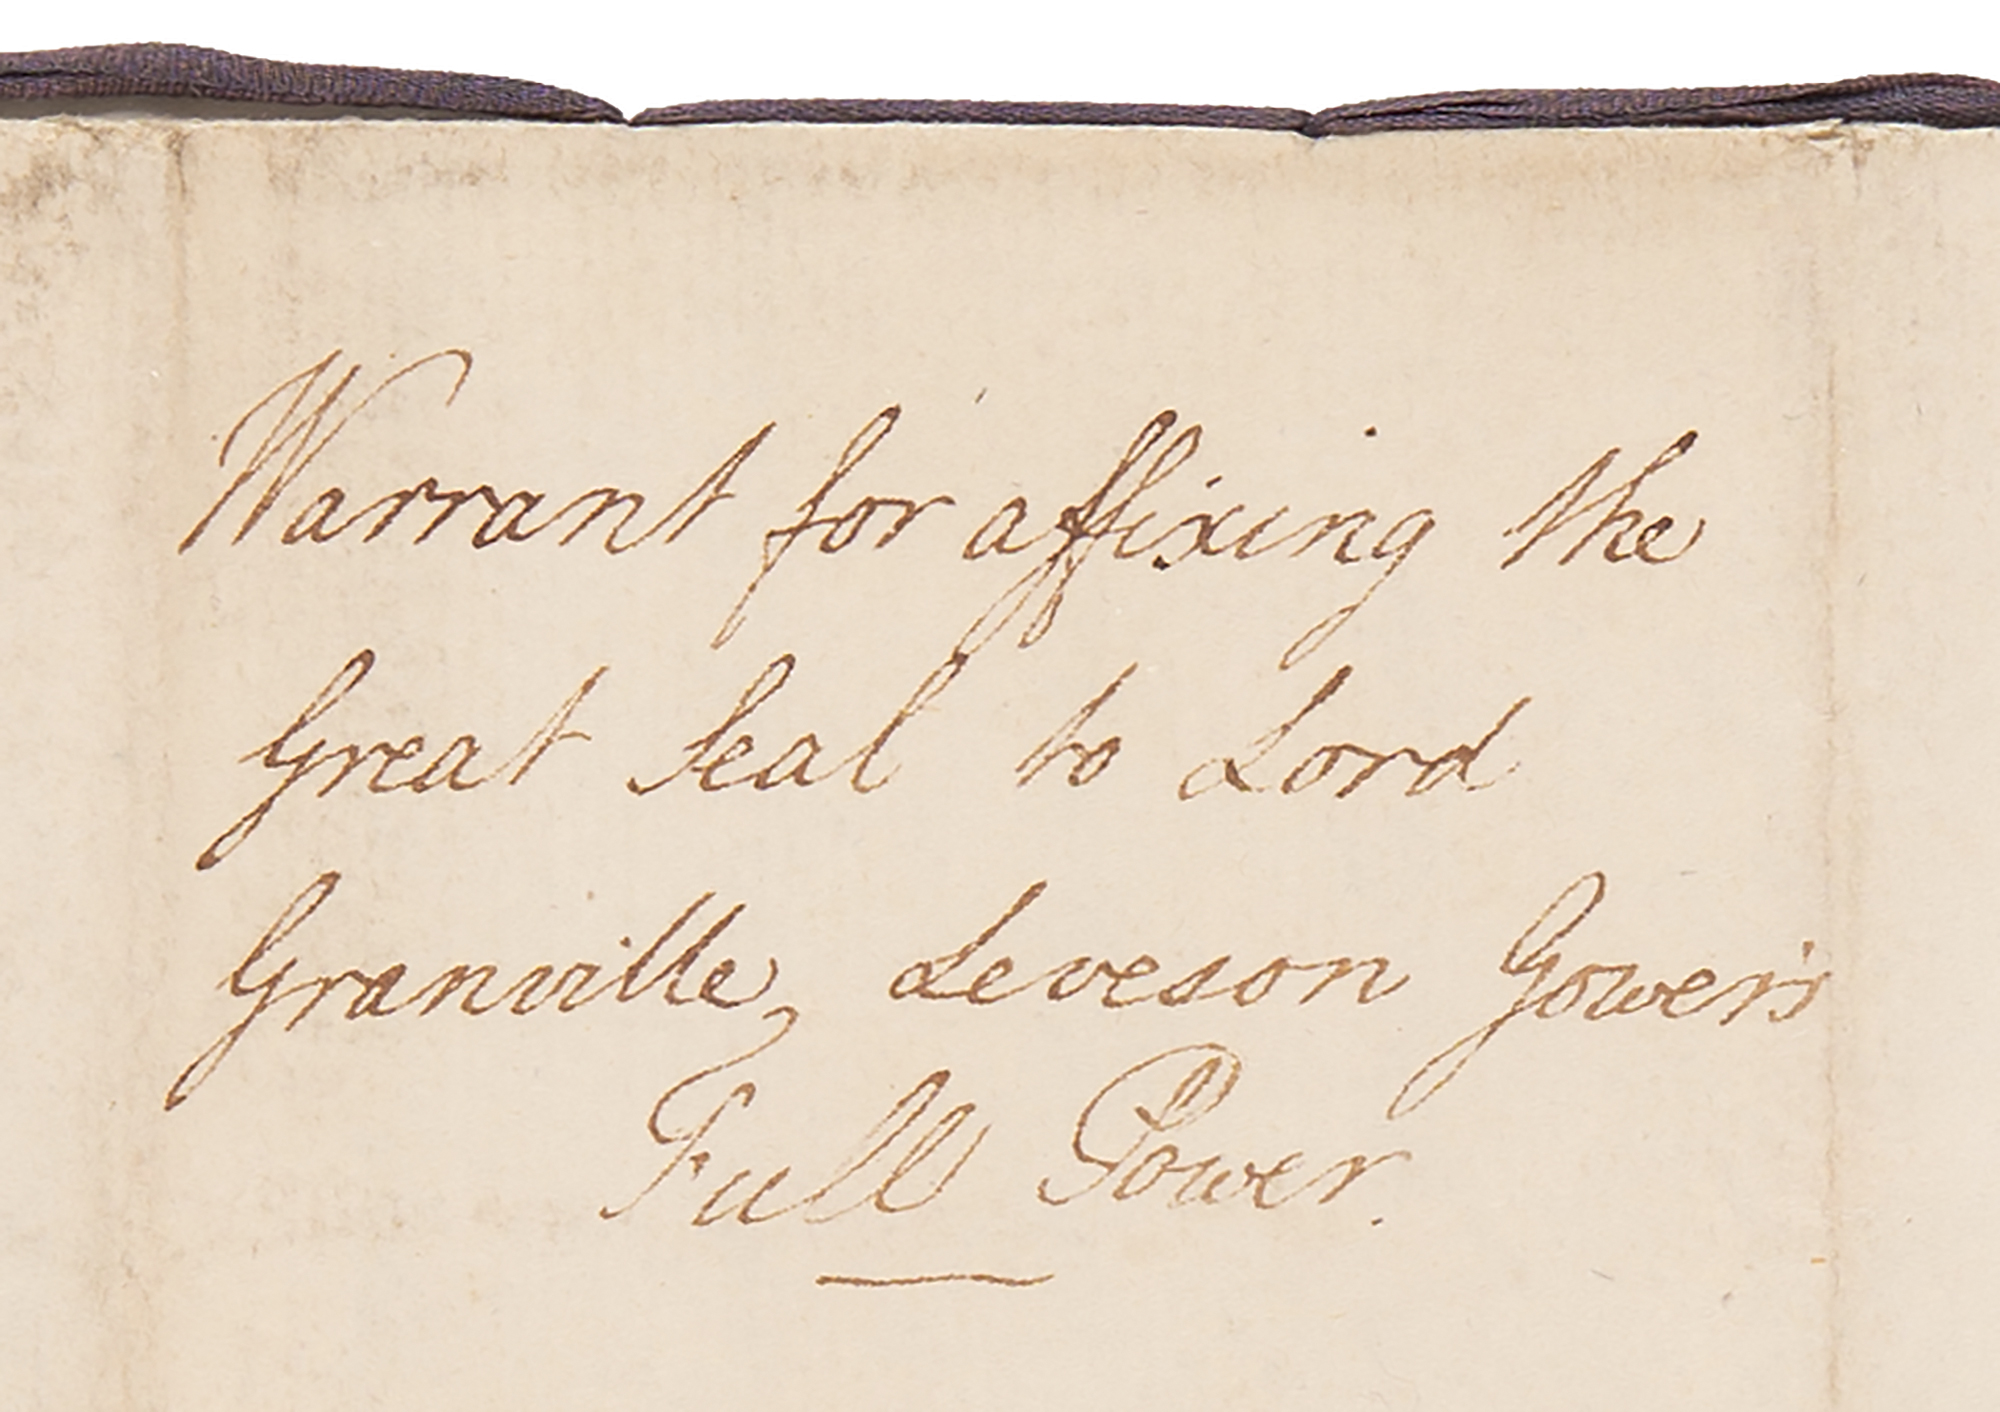 Warrant for affixing the
Great Seal to Lord
Granville Leveson Gower's
Full Power.